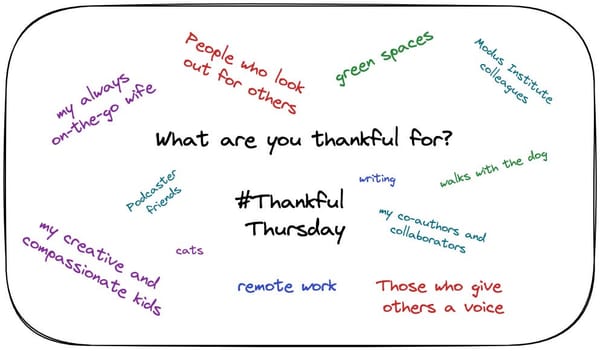 my always
on-the-go wife
People who look
out for others
green spaces
Modus Institute
colleagues
What are you thankful for?
Podcaster
friends
#Thankful
Thursday
writing
walks with the dog
my creative and
compassionate kids
cats
my co-authors and
collaborators
remote work
Those who give
others a voice